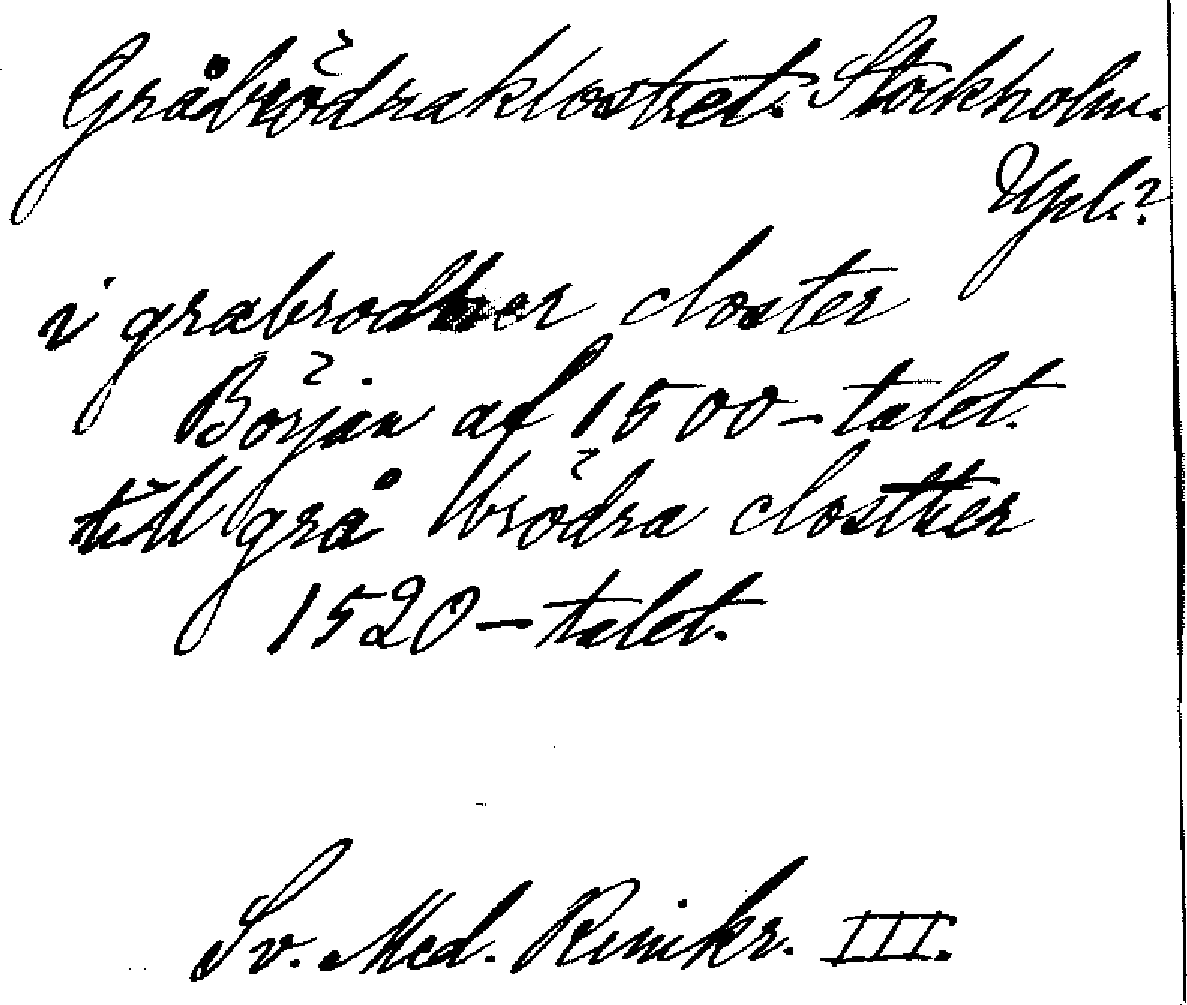 Gråbrödraklostret. Stockholm.
Upl.?
i grabrodher closter
Början af 1500-talet.
till grå brödra clostter
1520-talet.
Sv. Med. Rimkr. III.